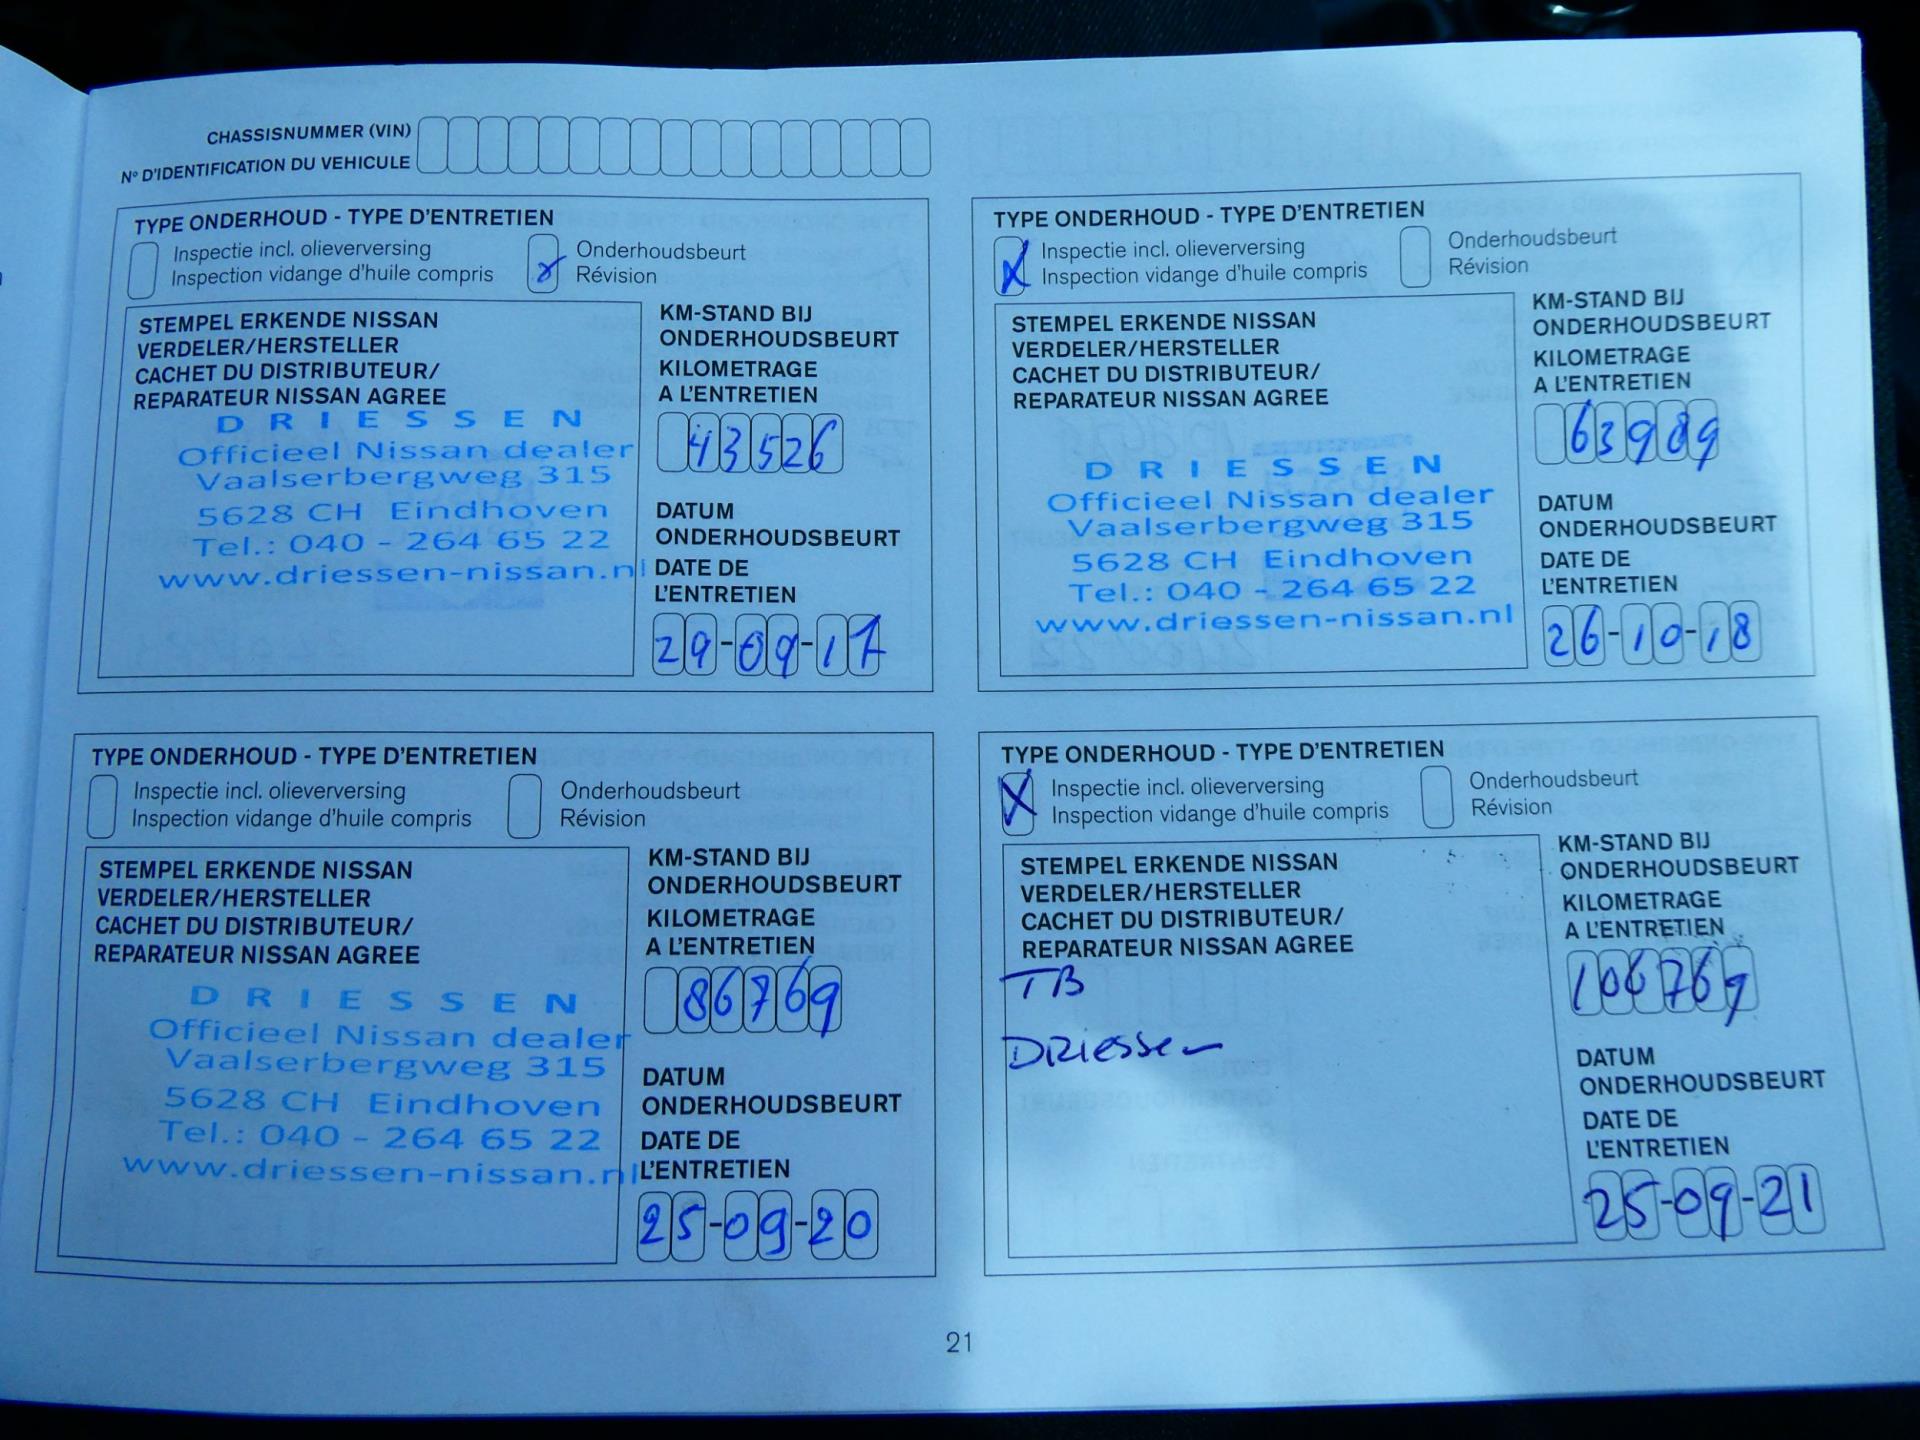 CHASSISNUMMER (VIN)
Nº D'IDENTIFICATION DU VEHICULE
TYPE ONDERHOUD - TYPE D'ENTRETIEN
Inspectie incl. olieverversing
Inspection vidange d'huile compris
Onderhoudsbeurt
Révision
STEMPEL ERKENDE NISSAN
VERDELER/HERSTELLER
CACHET DU DISTRIBUTEUR/
REPARATEUR NISSAN AGREE
DRIESSEN
Officieel Nissan dealer
Vaalserbergweg 315
5628 CH Eindhoven
Tel.: 040 - 264 65 22
www.driessen-nissan.nl
KM-STAND BIJ
ONDERHOUDSBEURT
KILOMETRAGE
A L'ENTRETIEN
43526
DATUM
ONDERHOUDSBEURT
DATE DE
L'ENTRETIEN
29-09-17
TYPE ONDERHOUD - TYPE D'ENTRETIEN
Inspectie incl. olieverversing
Inspection vidange d'huile compris
Onderhoudsbeurt
Révision
STEMPEL ERKENDE NISSAN
VERDELER/HERSTELLER
CACHET DU DISTRIBUTEUR/
REPARATEUR NISSAN AGREE
DRIESSEN
Officieel Nissan dealer
Vaalserbergweg 315
5628 CH Eindhoven
Tel.: 040 - 264 65 22
www.driessen-nissan.nl
KM-STAND BIJ
ONDERHOUDSBEURT
KILOMETRAGE
A L'ENTRETIEN
63989
DATUM
ONDERHOUDSBEURT
DATE DE
L'ENTRETIEN
26-10-18
TYPE ONDERHOUD - TYPE D'ENTRETIEN
Inspectie incl. olieverversing
Inspection vidange d'huile compris
Onderhoudsbeurt
Révision
STEMPEL ERKENDE NISSAN
VERDELER/HERSTELLER
CACHET DU DISTRIBUTEUR/
REPARATEUR NISSAN AGREE
DRIESSEN
Officieel Nissan dealer
Vaalserbergweg 315
5628 CH Eindhoven
Tel.: 040 - 264 65 22
www.driessen-nissan.nl
KM-STAND BIJ
ONDERHOUDSBEURT
KILOMETRAGE
A L'ENTRETIEN
86769
DATUM
ONDERHOUDSBEURT
DATE DE
L'ENTRETIEN
25-09-20
TYPE ONDERHOUD - TYPE D'ENTRETIEN
Inspectie incl. olieverversing
Inspection vidange d'huile compris
Onderhoudsbeurt
Révision
STEMPEL ERKENDE NISSAN
VERDELER/HERSTELLER
CACHET DU DISTRIBUTEUR/
REPARATEUR NISSAN AGREE
TB
DRiessen
KM-STAND BIJ
ONDERHOUDSBEURT
KILOMETRAGE
A L'ENTRETIEN
106769
DATUM
ONDERHOUDSBEURT
DATE DE
L'ENTRETIEN
25-09-21
21